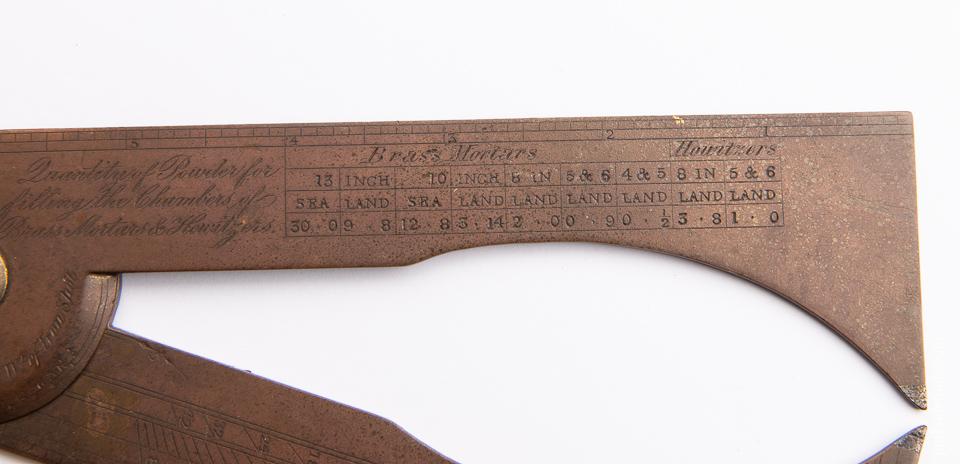 5 4 3 2 1
Quantity of Powder for
filling the Chambers of
Brass Mortars & Howitzers.
Brass Mortars Howitzers
13 INCH 10 INCH 8 IN 5 & 6 4 & 5 8 IN 5 & 6
SEA LAND SEA LAND LAND LAND LAND LAND LAND
30·0 9·8 12·8 3·14 2·0 0·9 0·½ 3·8 1·0